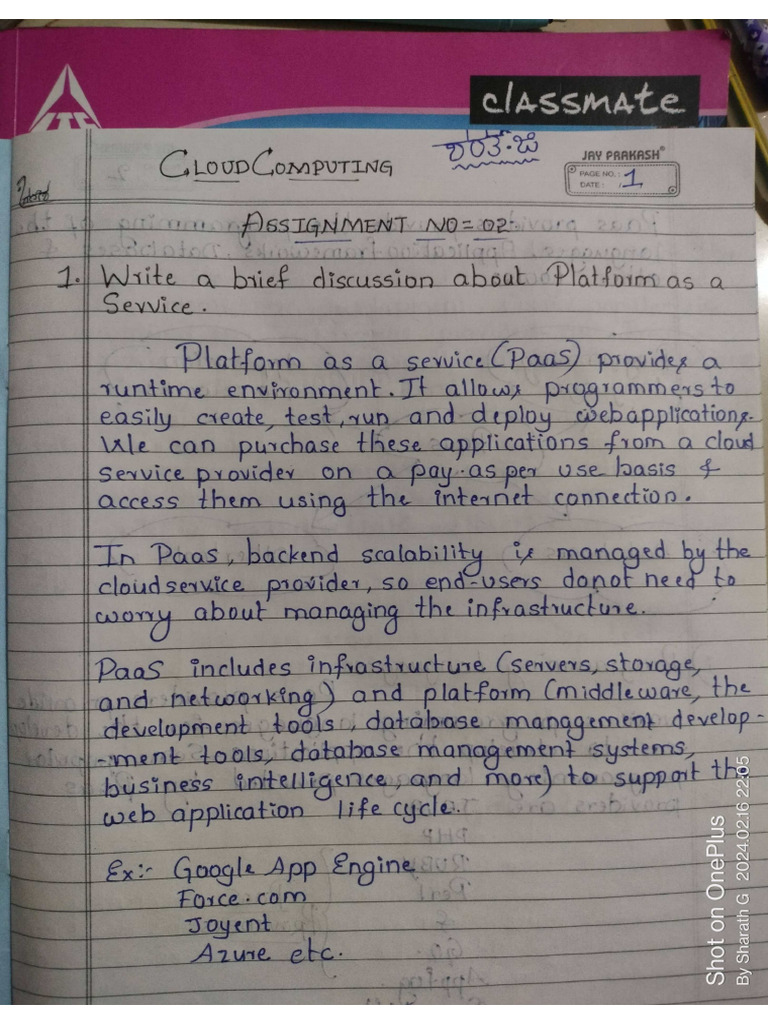 classmate
ITS
CLOUD COMPUTING
ಶರತ್.ಜಿ
JAY PRAKASH®
PAGE NO.: 1
DATE: / /
ASSIGNMENT NO = 02:-
1. Write a brief discussion about Platform as a
Service.
Platform as a service (Paas) provides a
runtime environment. It allows programmers to
easily create, test, run and deploy web applications.
We can purchase these applications from a cloud
service provider on a pay-as per use basis &
access them using the internet connection.
In Paas, backend scalability is managed by the
cloud service provider, so end-users donot need to
worry about managing the infrastructure.
PaaS includes infrastructure (servers, storage,
and networking) and platform (middleware, the
development tools, database management develop-
-ment tools, database management systems,
business intelligence, and more) to support the
web application life cycle.
Ex:- Google App Engine
Force.com
Joyent
Azure etc.
Shot on OnePlus
By Sharath G 2024.02.16 22:05